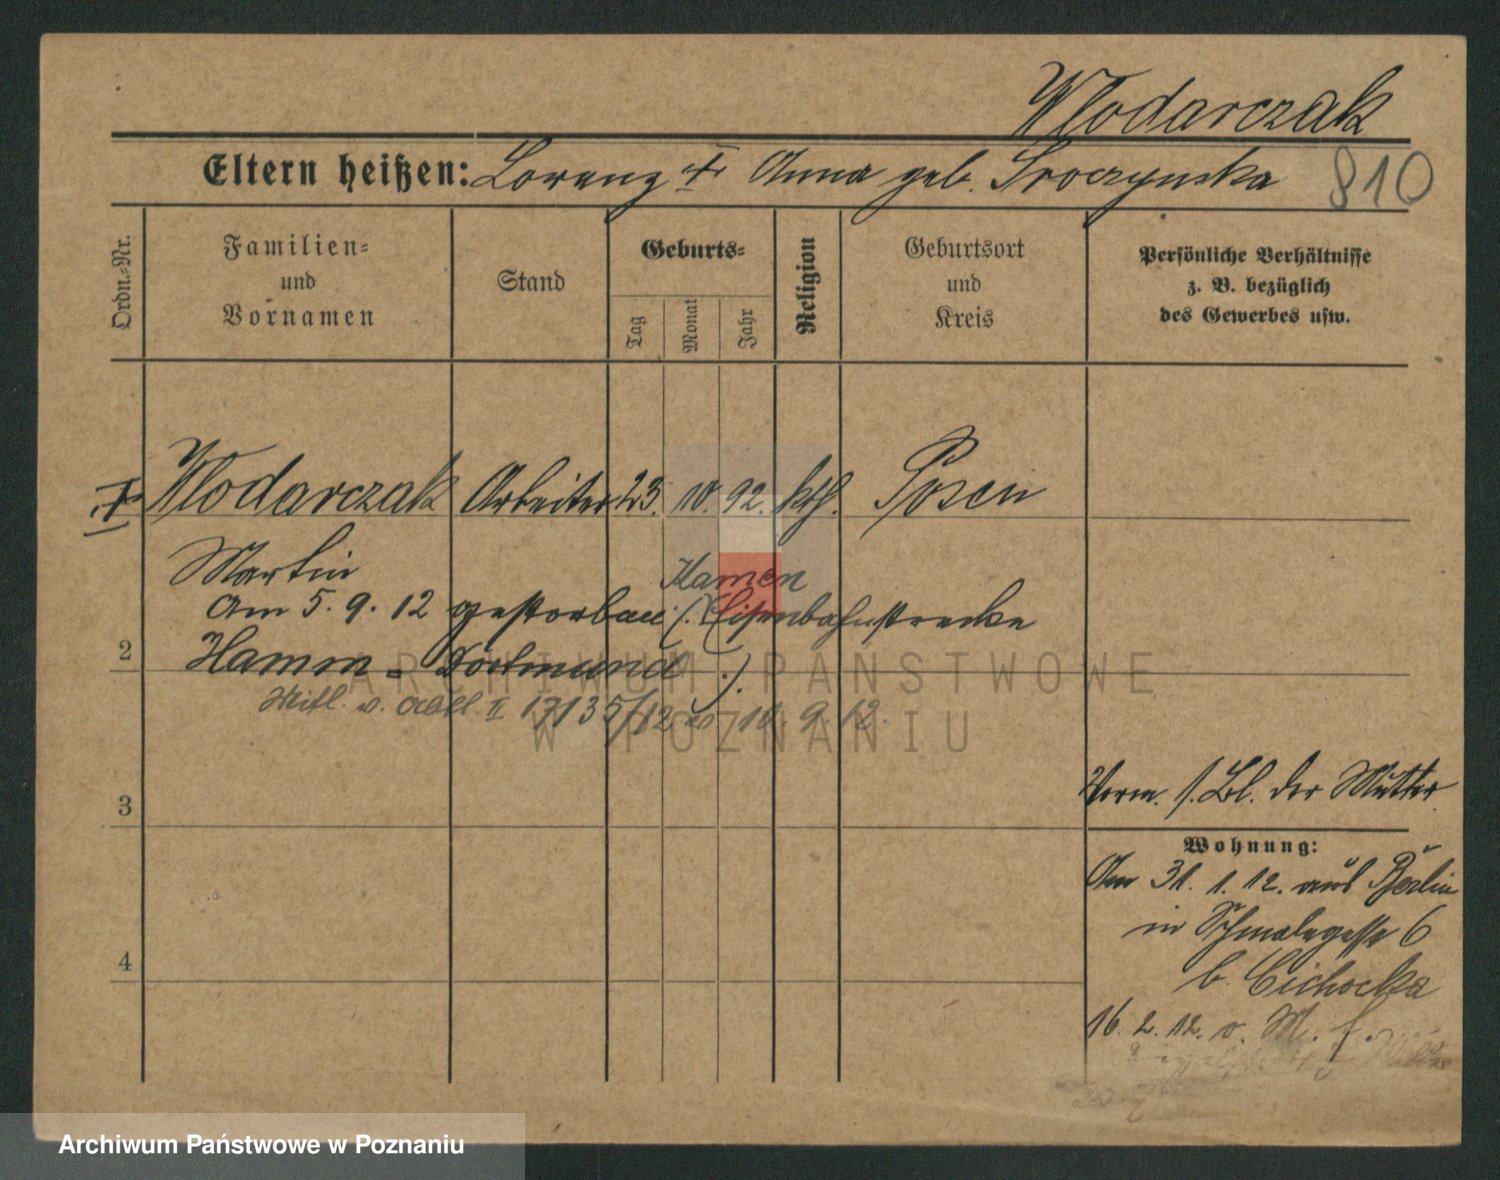 Wlodarczak
Eltern heißen: Lorenz † Anna geb. Sroczynska 810
Ordn.-Nr.
Familien-
und
Vornamen
Stand
Geburts-
Tag
Monat
Jahr
Religion
Geburtsort
und
Kreis
Persönliche Verhältnisse
z. B. bezüglich
des Gewerbes usw.
† Wlodarczak Arbeiter 23. 10. 92. kth. Posen
Martin
Kamen
Am 5. 9. 12 gestorben (Eisenbahnstrecke
2 Hamm - Dortmund)
Mitl. II 17135/12 10. 9. 12.
ARCHIWUM PAŃSTWOWE
W POZNANIU
3
Verm. s. Bl. der Mutter
Wohnung:
Am 31. 1. 12. aus Berlin
in Schmalegasse 6
4
b. Cichocka
16. 2. 12. v. M. f.
Archiwum Państwowe w Poznaniu